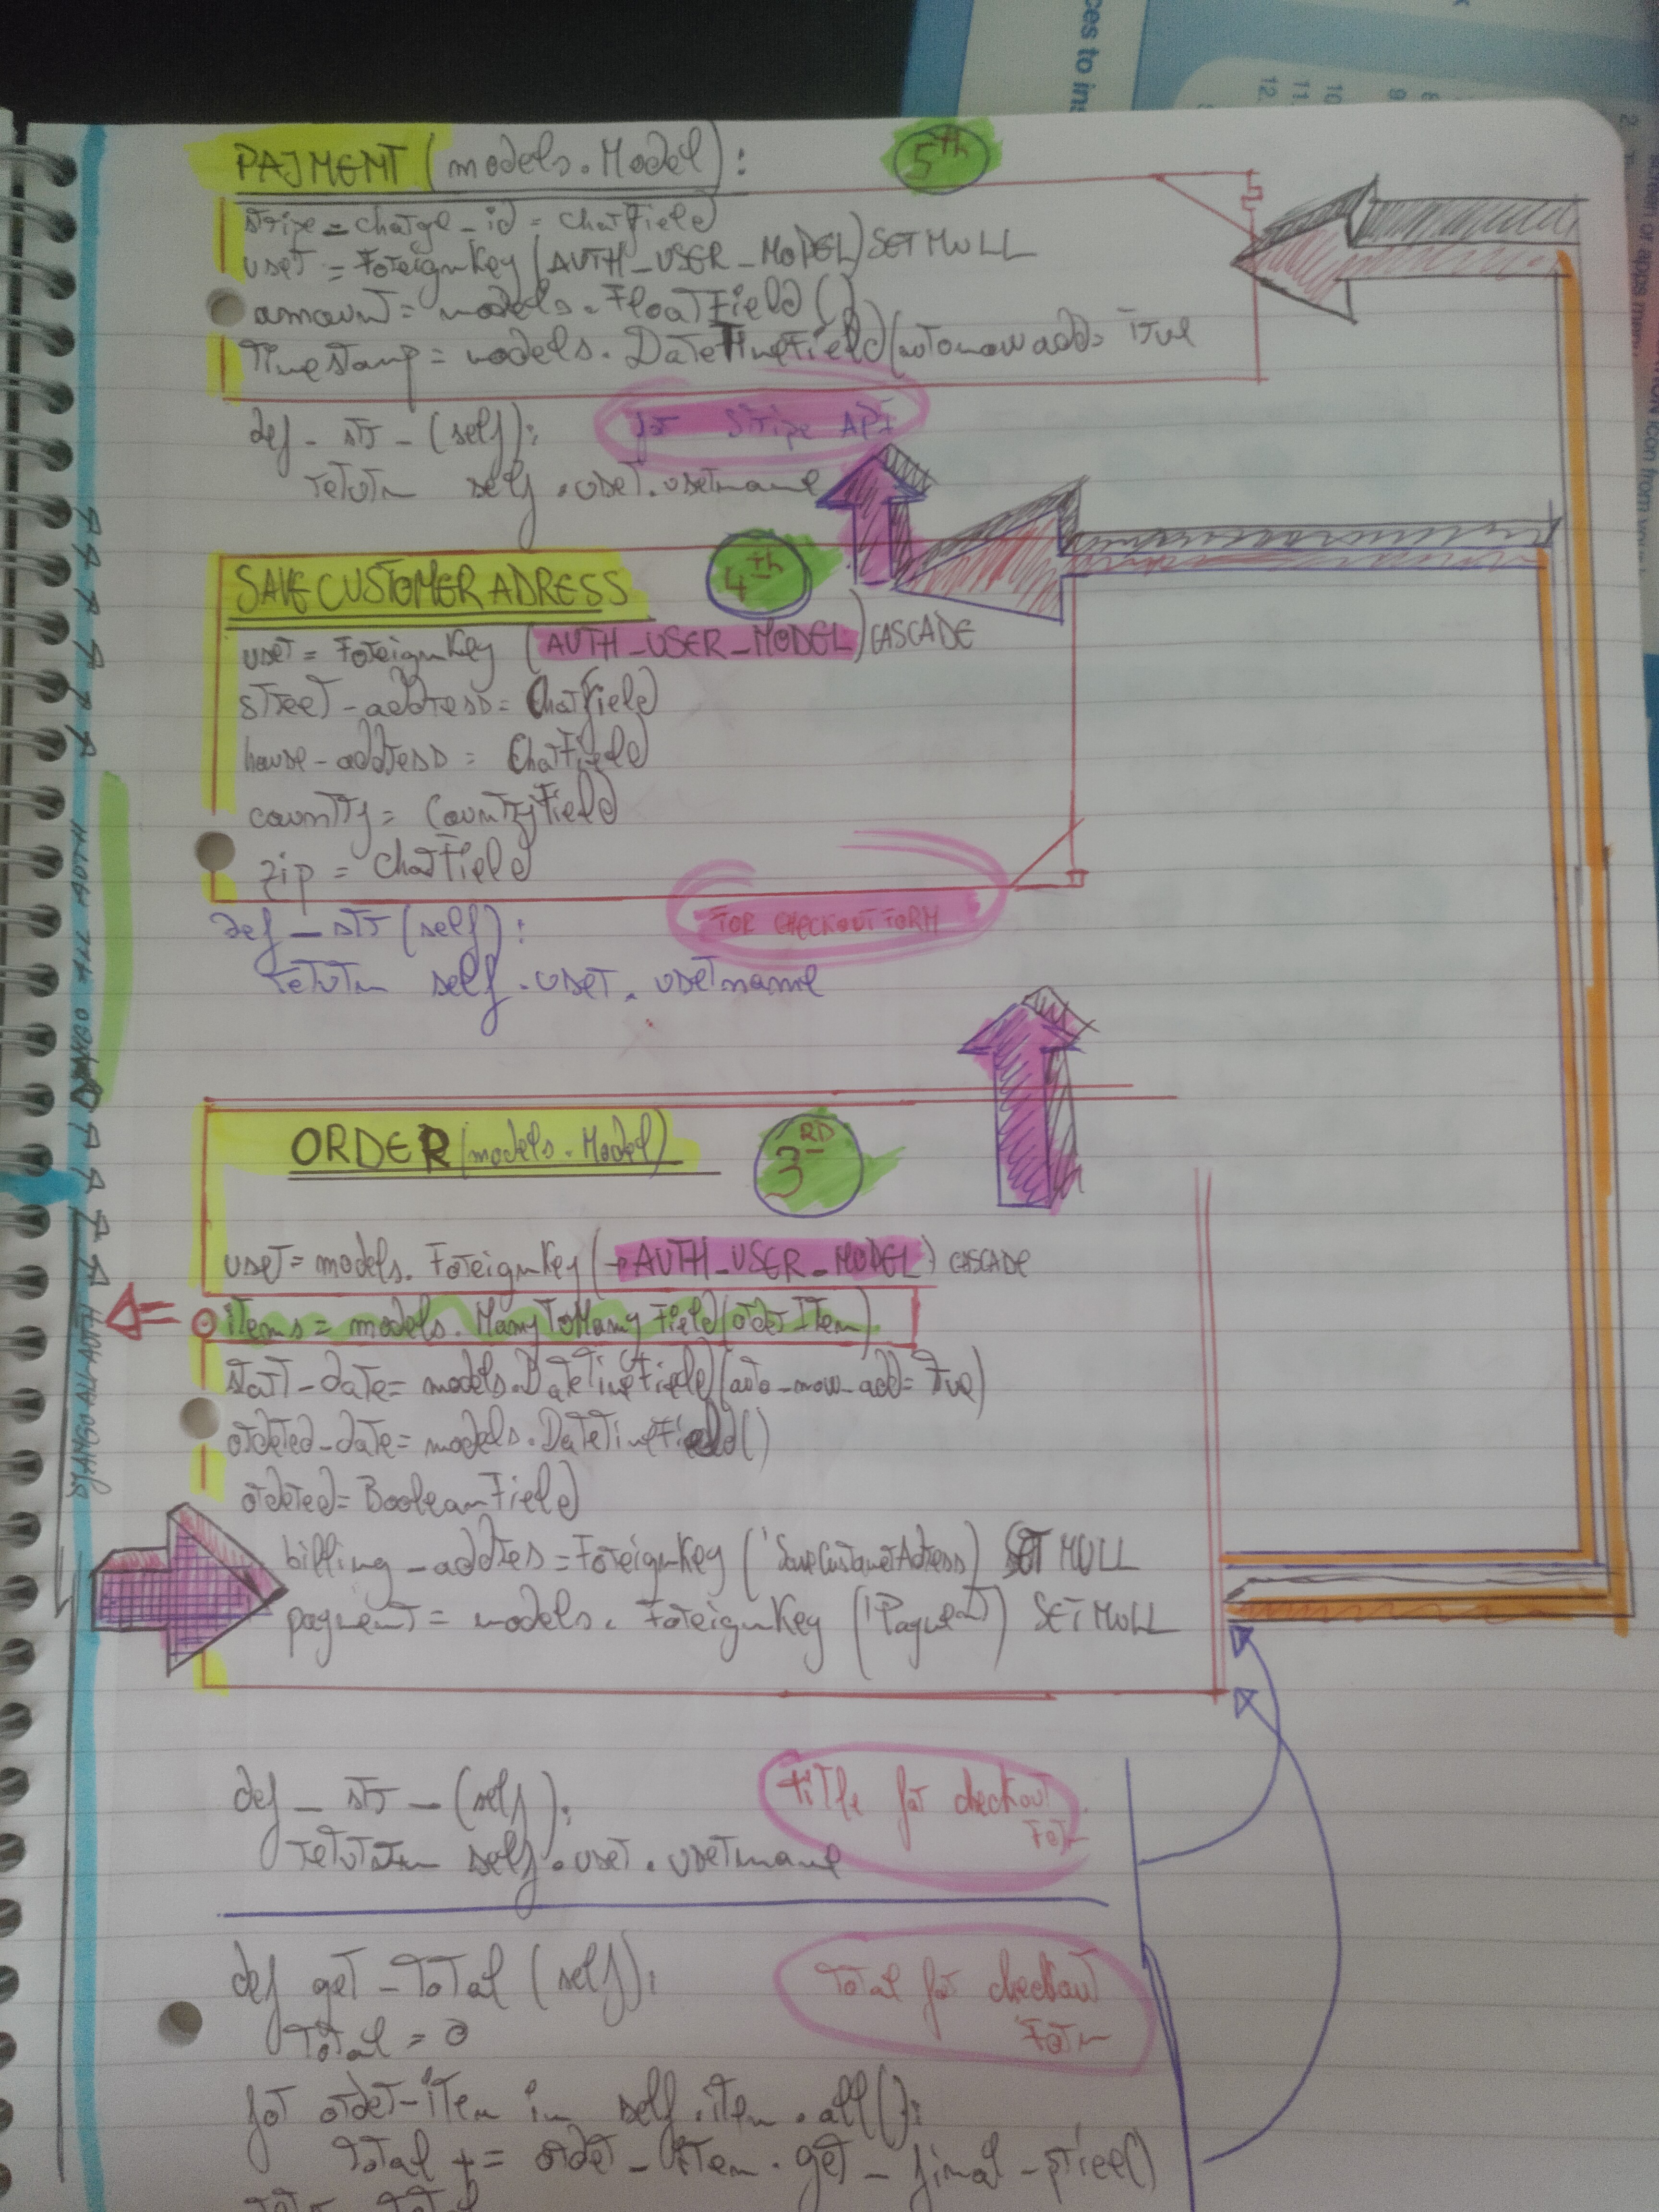 PAJMEMT (models.Model):
5th
stripe = charge_id = CharField
user = ForeignKey (AUTH_USER_MODEL) SET NULL
amount = models.FloatField()
Timestamp = models.DateTimeField(autonowadd= True
def_str_(self):
for Stripe API
return self.user.username
SAVE CUSTOMER ADRESS
4th
user = ForeignKey (AUTH_USER_MODEL) CASCADE
street_address = CharField
house_address = CharField
country = CountryField
zip = CharField
def_str(self):
FOR CHECKOUT FORM
return self.user.username
ORDER(models.Model)
3RD
user = models.ForeignKey(AUTH_USER_MODEL) CASCADE
items = models.ManyToManyField(OrderItem)
start_date = models.DateTimeField(auto_now_add= True)
ordered_date = models.DateTimeField()
ordered = BooleanField
billing_addres = ForeignKey ('SaveCustomerAdress) SET NULL
payment = models.ForeignKey ('Payment) SET NULL
def_str_(self):
title for checkout
Form
return self.user.username
def get_total (self):
total for checkout
Form
total = 0
for order_item in self.item.all():
total += order_item.get_final_price()
DJANGO ALL AUTH
DJANGO ALL-AUTH
ces to ins
12.
11.
10
9
8
2.